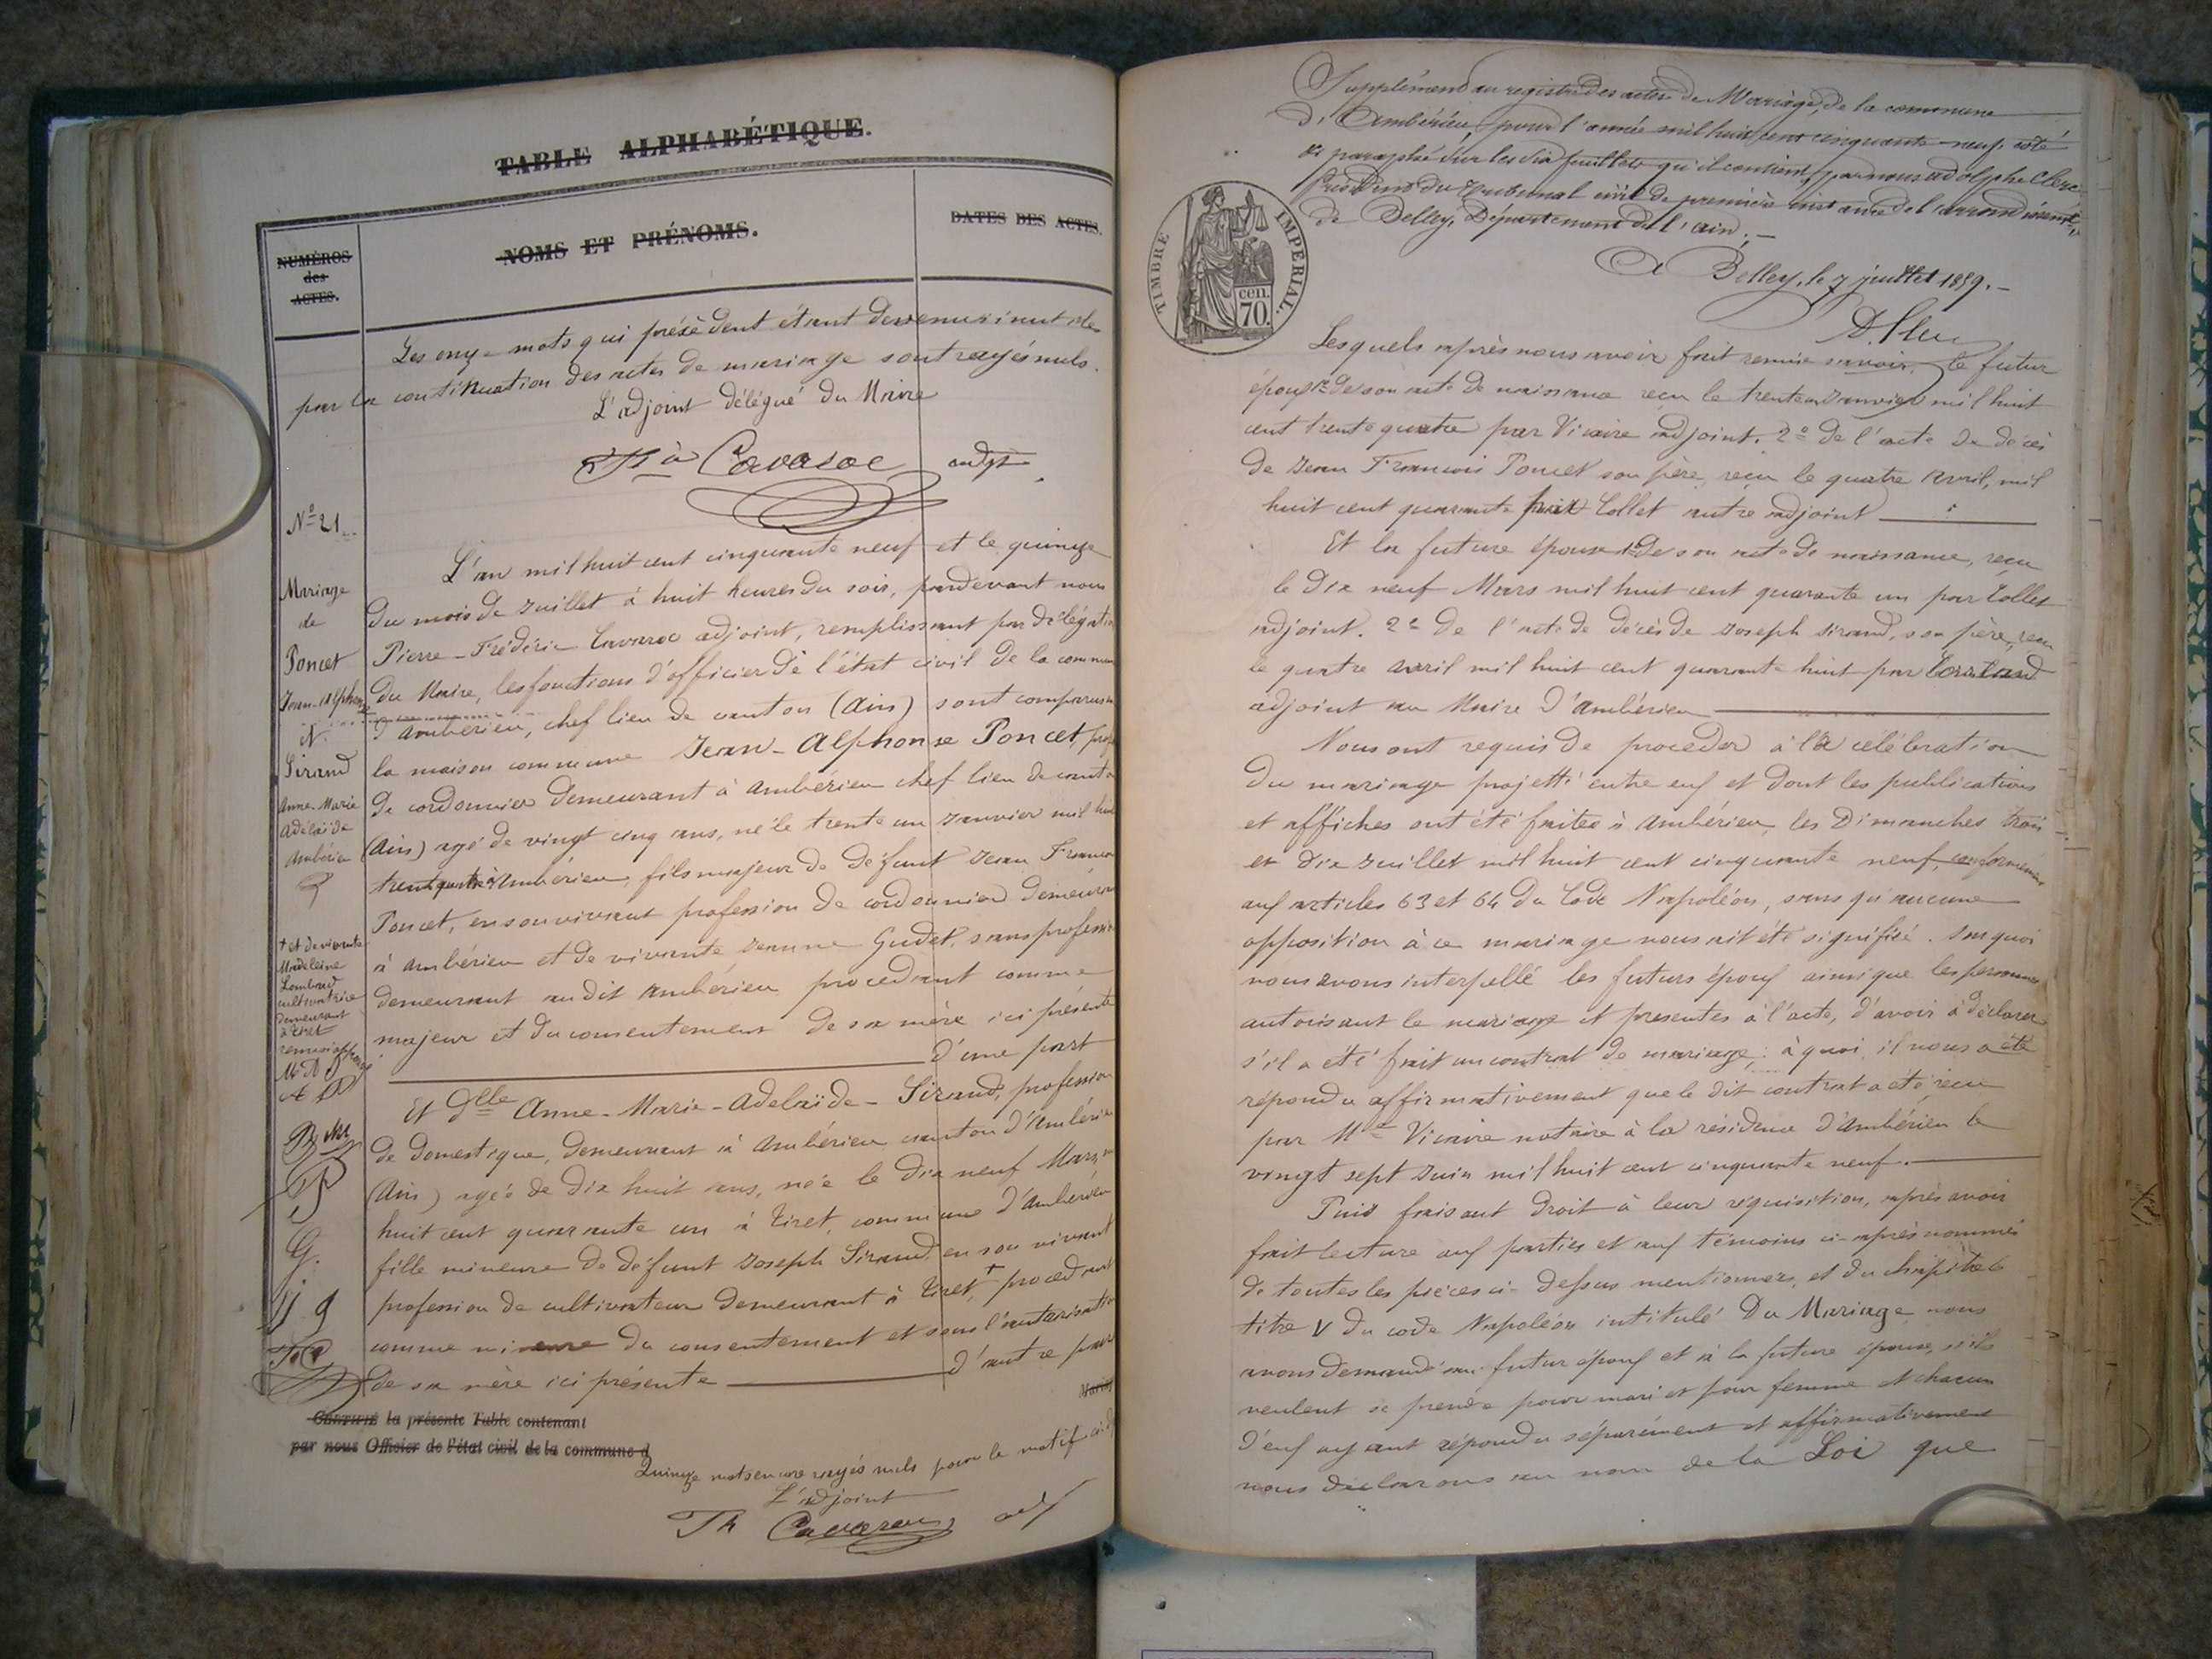 TABLE ALPHABÉTIQUE.
NUMÉROS
des
ACTES.
NOMS ET PRÉNOMS.
DATES DES ACTES.
Les onze mots qui précèdent étant devenus inutiles
par la continuation des actes de mariage sont rayés nuls.
L'adjoint délégué du Maire
Cavaroc adjt
N° 21
Mariage
de
Poncet
Jean-Alphonse
Sirand
Anne-Marie
Adélaïde
Ambérieu
+ et de vivante
Madeleine
Lombard
cultivatrice
demeurant
à Tiret
renvoi approuvé
L'an mil huit cent cinquante neuf et le quinze
du mois de Juillet à huit heures du soir, pardevant nous
Pierre-Frédéric Cavaroc adjoint, remplissant par délégation
du Maire, les fonctions d'officier de l'état civil de la commune
d'Ambérieu, chef lieu de canton (Ain) sont comparus
la maison commune Jean-Alphonse Poncet,
de cordonnier demeurant à Ambérieu chef lieu de canton
(Ain) agé de vingt cinq ans, né le trente un Janvier mil huit
trente quatre à Ambérieu, fils majeur de défunt Jean François
Poncet, en son vivant profession de cordonnier demeurant
à Ambérieu et de vivante Jeanne Gudet, sans profession
demeurant au dit Ambérieu procédant comme
majeur et du consentement de sa mère ici présente
d'une part
Et Dlle Anne-Marie-Adelaïde-Sirand, profession
de domestique, demeurant à Ambérieu canton d'Ambérieu
(Ain) agée de dix huit ans, née le dix neuf Mars
huit cent quarante un à Tiret, commune d'Ambérieu
fille mineure de défunt Joseph Sirand en son vivant
profession de cultivateur demeurant à Tiret, + procédant
comme mineure du consentement et sous l'autorisation
de sa mère ici présente d'autre part
CERTIFIÉ la présente Table contenant
par nous Officier de l'état civil de la commune d
Quinze mots encore rayés nuls pour le motif
L'adjoint
Cavaroc adj
Supplément au registre des actes de Mariage, de la commune
d'Ambérieu, pour l'année mil huit cent cinquante-neuf, coté
et paraphé sur les six feuillets qu'il contient, par nous Adolphe Clerc
Président du Tribunal civil de première instance de l'arrondissement
de Belley, Département de l'Ain.
A Belley, le 7 juillet 1859.
TIMBRE IMPÉRIAL.
70 cen.
Lesquels après nous avoir fait remise savoir, le futur
époux de son acte de naissance reçu le trente un Janvier mil huit
cent trente quatre par Vicaire adjoint. 2° de l'acte de décès
de Jean François Poncet son père, reçu le quatre Avril, mil
huit cent quarante par Collet autre adjoint
Et la future épouse 1° de son acte de naissance, reçu
le dix neuf Mars mil huit cent quarante un par Collet
adjoint. 2° de l'acte de décès de Joseph Sirand, son père, reçu
le quatre Avril mil huit cent quarante huit par
adjoint au Maire d'Ambérieu
Nous ont requis de procéder à la célébration
du mariage projetté entre eux et dont les publications
et affiches ont été faites à Ambérieu, les Dimanches trois
et dix Juillet mil huit cent cinquante neuf, conformément
aux articles 63 et 64 du Code Napoléon, sans qu'aucune
opposition à ce mariage nous ait été signifiée. Sur quoi
nous avons interpellé les futurs époux ainsi que les personnes
autorisant le mariage et presentes à l'acte, d'avoir à déclarer
s'il a été fait un contrat de mariage; à quoi il nous a été
répondu affirmativement que le dit contrat a été reçu
par Me Vicaire notaire à la résidence d'Ambérieu le
vingt sept Juin mil huit cent cinquante neuf.
Puis faisant droit à leur réquisition, après avoir
fait lecture aux parties et aux témoins ci-après nommés
de toutes les pièces ci-dessus mentionnées, et du chapitre 6
titre V du code Napoléon intitulé Du Mariage nous
avons demandé au futur époux et à la future épouse, s'ils
veulent se prendre pour mari et pour femme et chacun
d'eux ayant répondu séparément et affirmativement
nous déclarons au nom de la Loi que